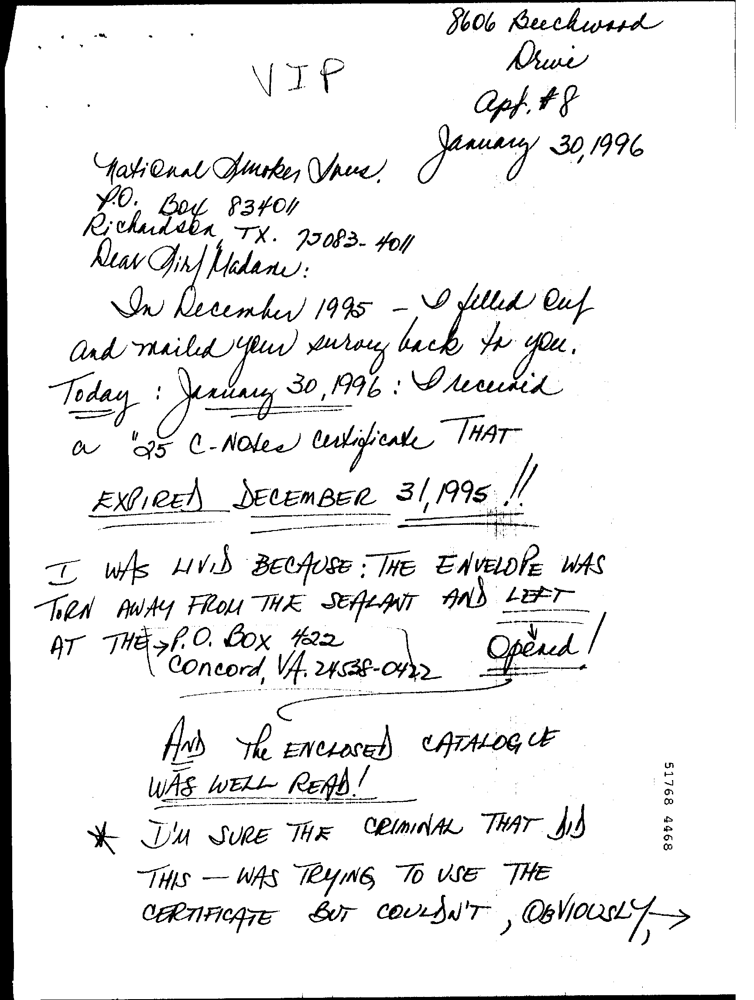 8606 Beechwood
Drive
VIP
Apt. #8
January 30, 1996
National Smoker
P.O. Box 834011
Richardson, TX. 75083-4011
Dear Sir/Madame:
In December 1995 – I filled out
and mailed your survey back to you.
Today: January 30, 1996: I received
a "25 C-Notes certificate THAT
EXPIRED DECEMBER 31, 1995!!
I WAS LIVID BECAUSE: THE ENVELOPE WAS
TORN AWAY FROM THE SEALANT AND LEFT
AT THE → P.O. BOX 422 Opened!
Concord, VA. 24538-0422
AND The ENCLOSED CATALOGUE
WAS WELL READ!
* I'M SURE THE CRIMINAL THAT DID
THIS — WAS TRYING TO USE THE
CERTIFICATE BUT COULDN'T, OBVIOUSLY, →
51768 4468